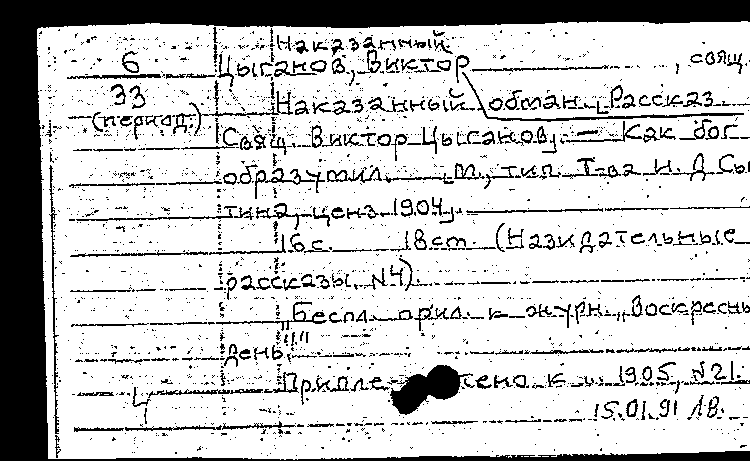 Наказанный
6 Цыганов, Виктор , свящ.
33 Наказанный обман. [Рассказ.
(период.) Свящ. Виктор Цыганов]. — Как бог
образумил. [М., тип. Т-ва И. Д. Сы
тина, ценз. 1904].
16 с. 18 см. (Назидательные
рассказы. №4).
"Беспл. прил. к журн. „Воскресный
день"."
Припле тено к 1905, №21.
4 15.01.91 ЛВ.